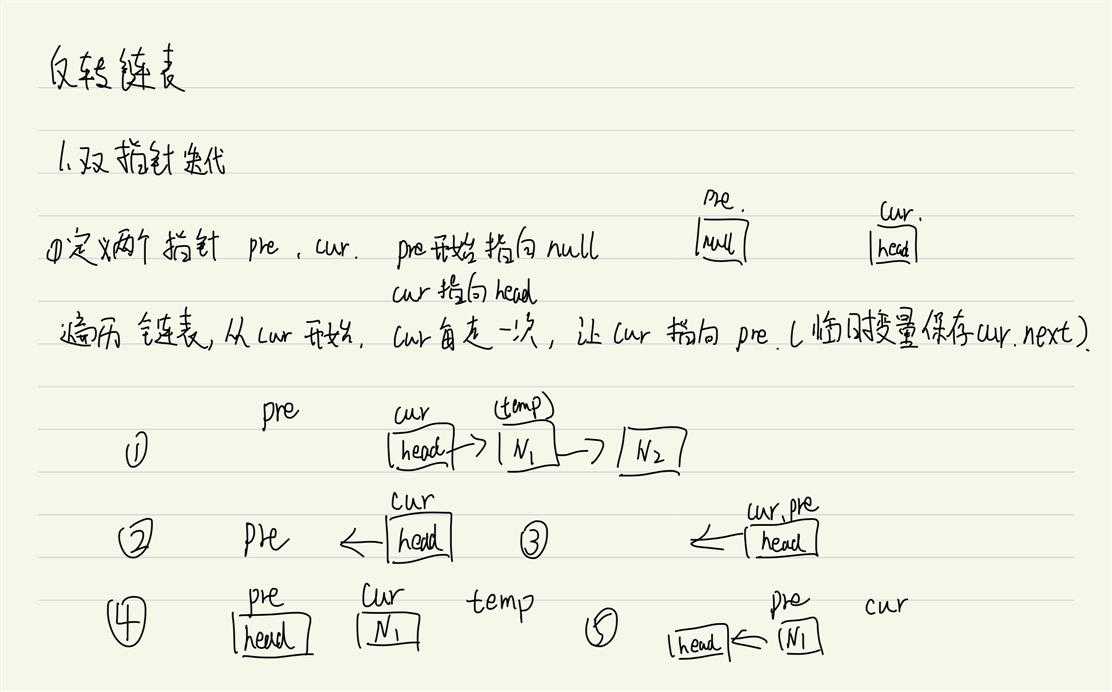 反转链表
1.双指针迭代
①定义两个指针 pre, cur. pre开始指向null
cur指向head
pre.
null
cur.
head
遍历链表,从cur开始, cur每走一次, 让cur指向pre.(临时变量保存cur.next)
① pre cur (temp)
head N1 N2
② pre cur
head
③ cur,pre
head
④ pre cur temp
head N1
⑤ pre cur
head N1